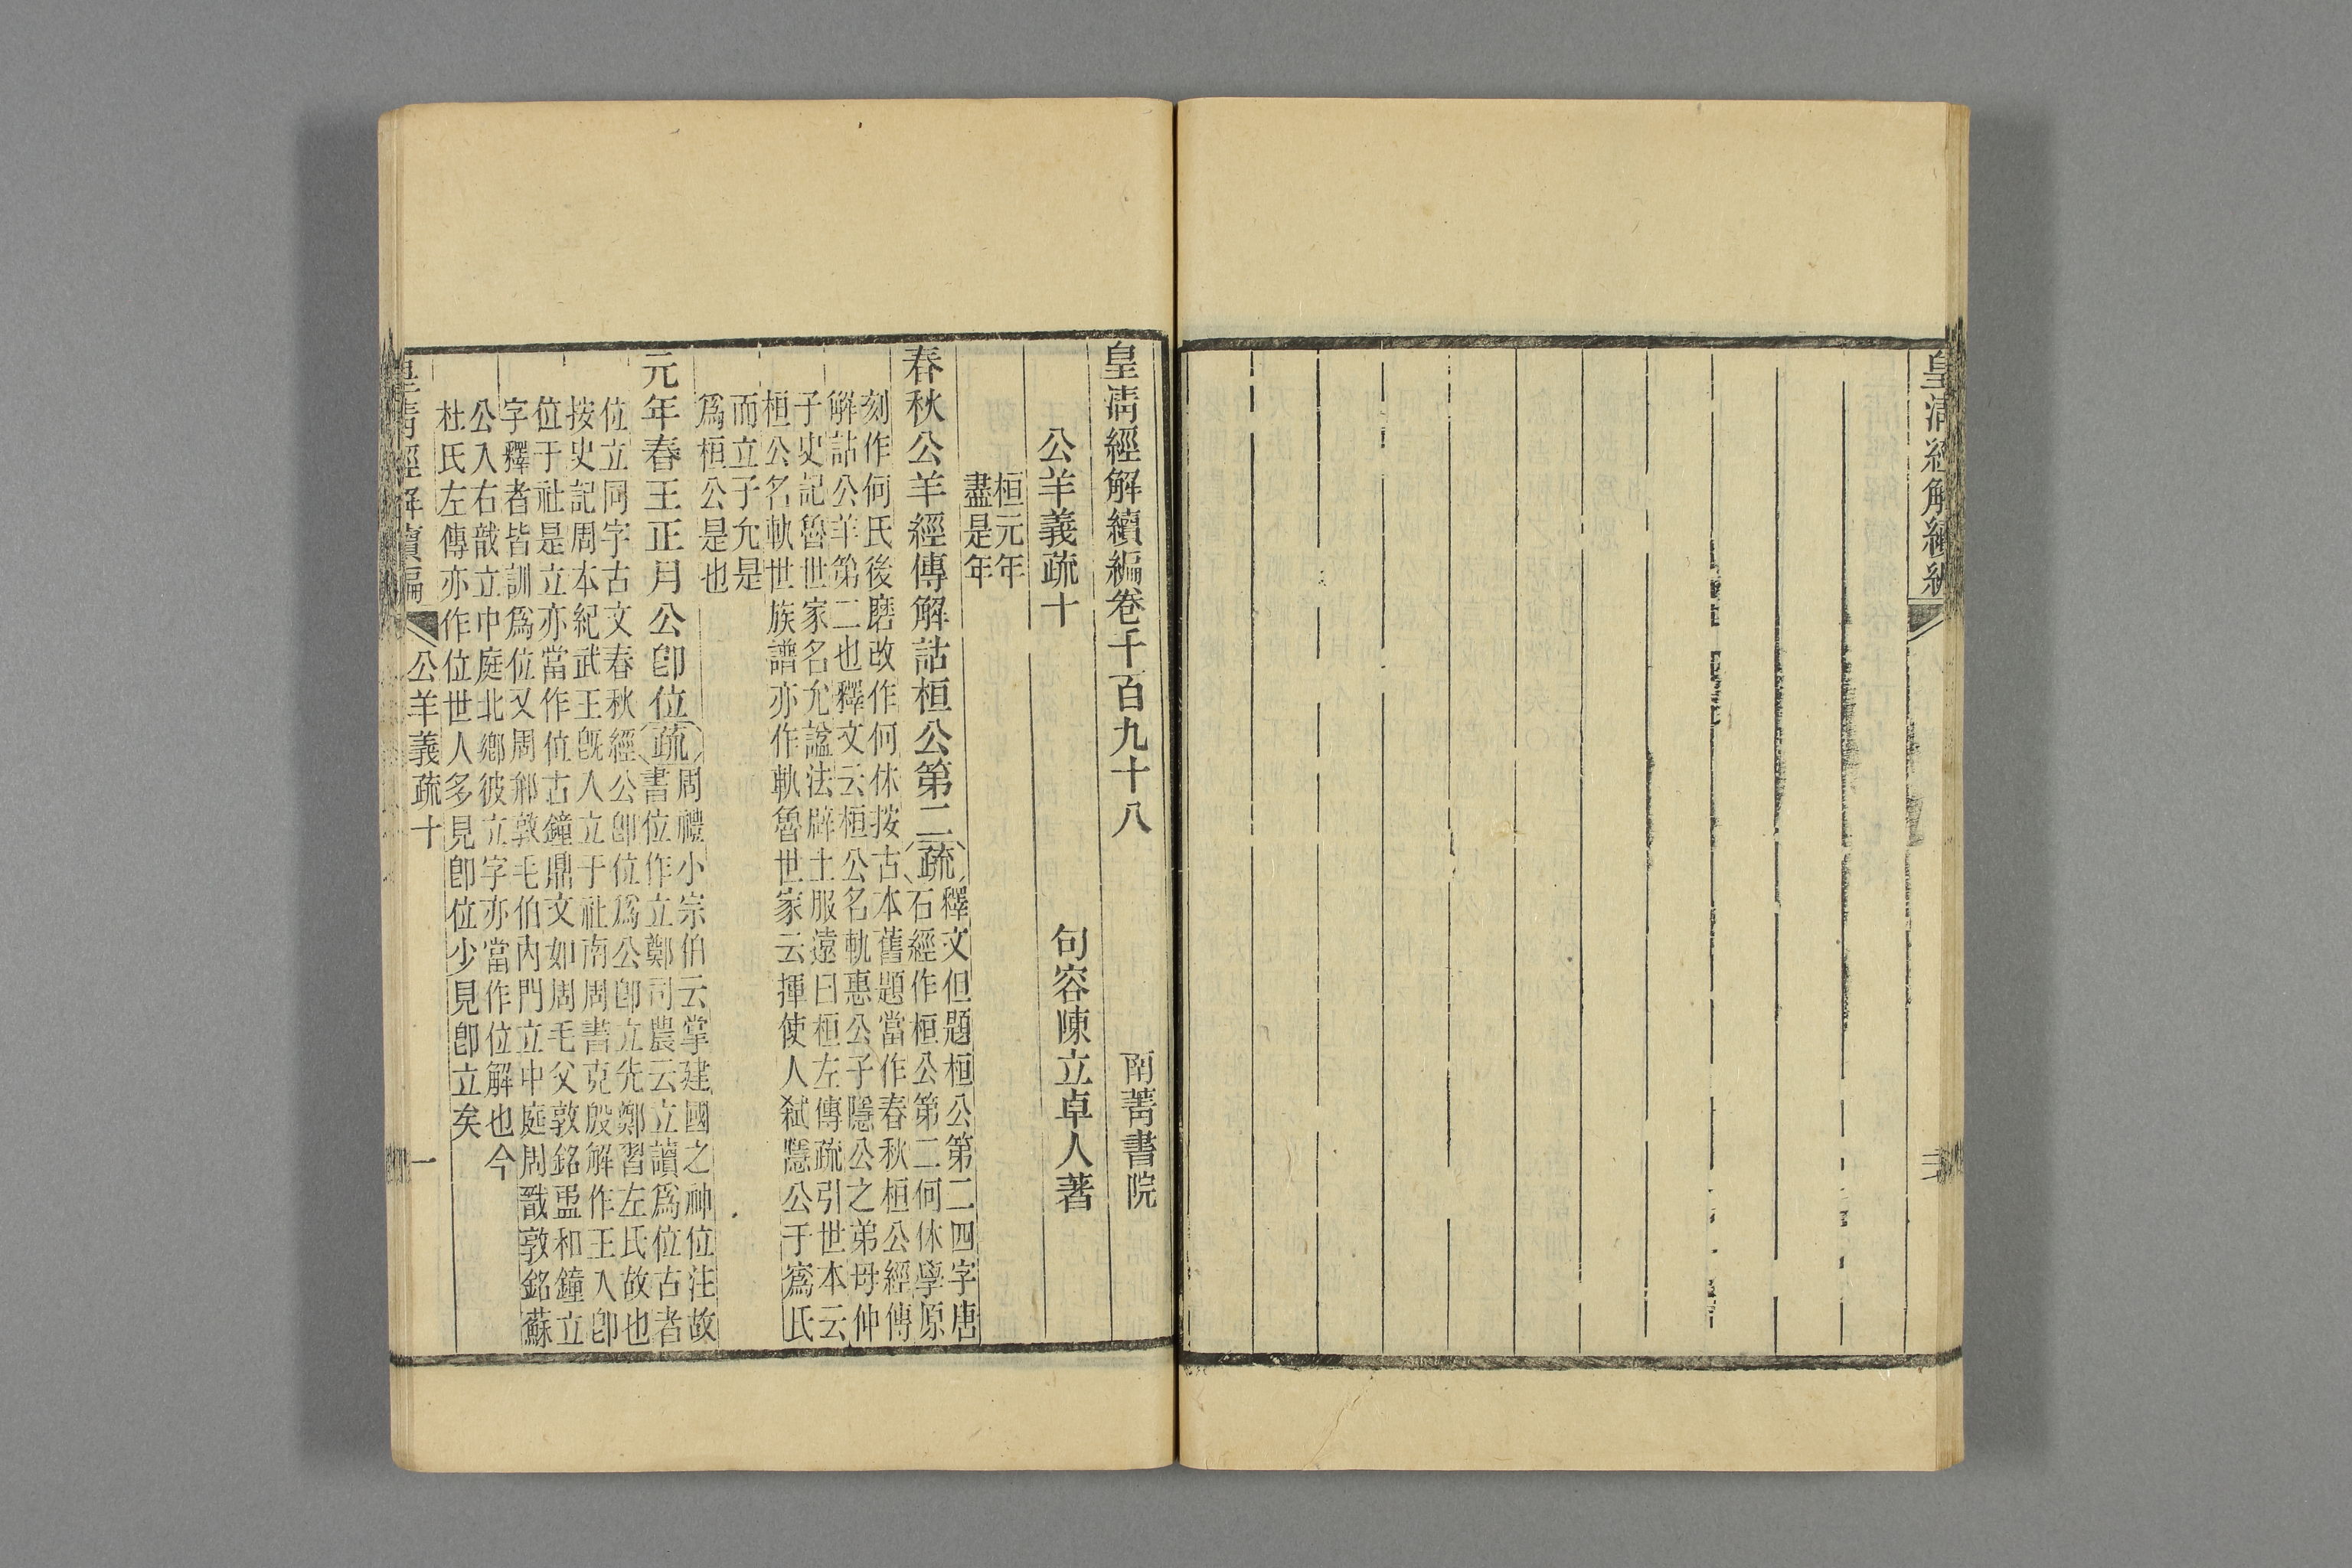 皇清經解續編
三
皇清經解續編卷千百九十八
南菁書院
公羊義疏十
句容陳立卓人著
桓元年
盡是年
春秋公羊經傳解詁桓公第二
疏
釋文但題桓公第二四字唐
石經作桓公第二何休學原
刻作何氏後磨改作何休按古本舊題當作春秋桓公經傳
解詁公羊第二也釋文云桓公名軌惠公子隱公之弟母仲
子史記魯世家名允諡法辟土服遠曰桓左傳疏引世本云
桓公名軌世族譜亦作軌魯世家云揮使人弑隱公于蔿氏
而立子允是
爲桓公是也
元年春王正月公卽位
疏
周禮小宗伯云掌建國之神位注故
書位作立鄭司農云立讀爲位古者
位立同字古文春秋經公卽位爲公卽立先鄭習左氏故也
按史記周本紀武王旣入立于社南周書克殷解作王入卽
位于社是立亦當作位古鐘鼎文如周毛父敦銘盄和鐘立
字釋者皆訓爲位又周䢵敦毛伯內門立中庭周敔敦銘蘇
公入右敔立中庭北鄕彼立字亦當作位解也今
杜氏左傳亦作位世人多見卽位少見卽立矣
皇清經解續編
公羊義疏十
一